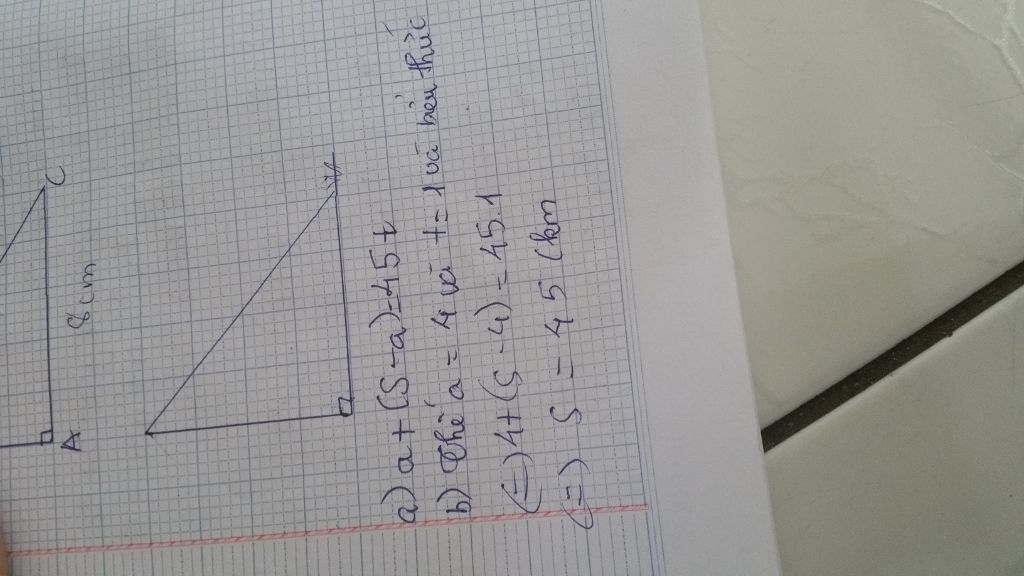 C
A
8cm
a) a + (S - a) = 45t
b) Thế a = 4 và t = 1 và bểu thức
(=) 4 + (S - 4) = 45.1
(=) S = 45 (km